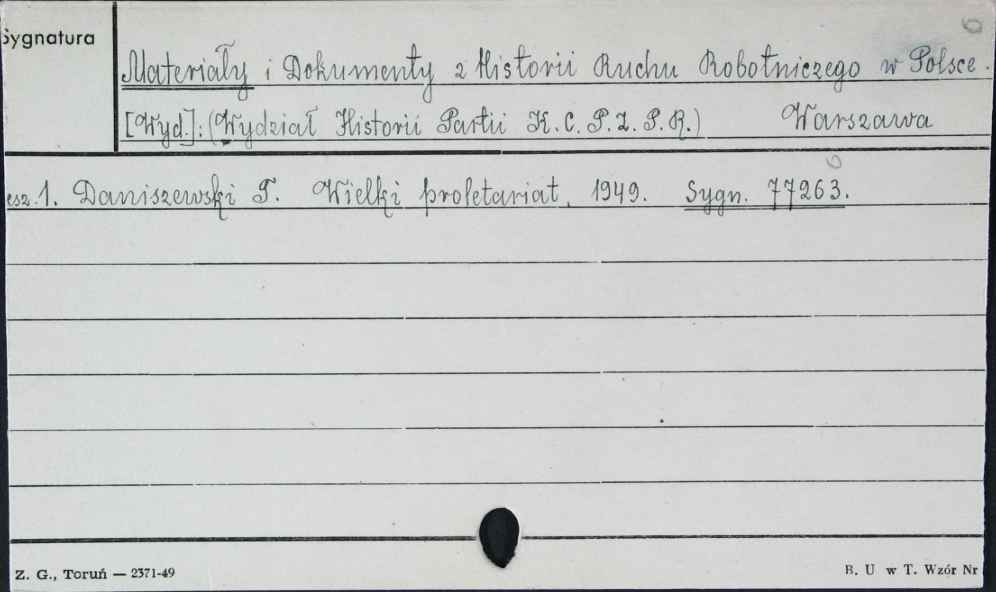 Sygnatura
6
Materiały i Dokumenty z Historii Ruchu Robotniczego w Polsce.
[Wyd.]: (Wydział Historii Partii K. C. P. Z. P. R.) Warszawa
esz. 1. Daniszewski T. Wielki proletariat, 1949. Sygn. 77263.
Z. G., Toruń — 2371-49
B. U w T. Wzór Nr